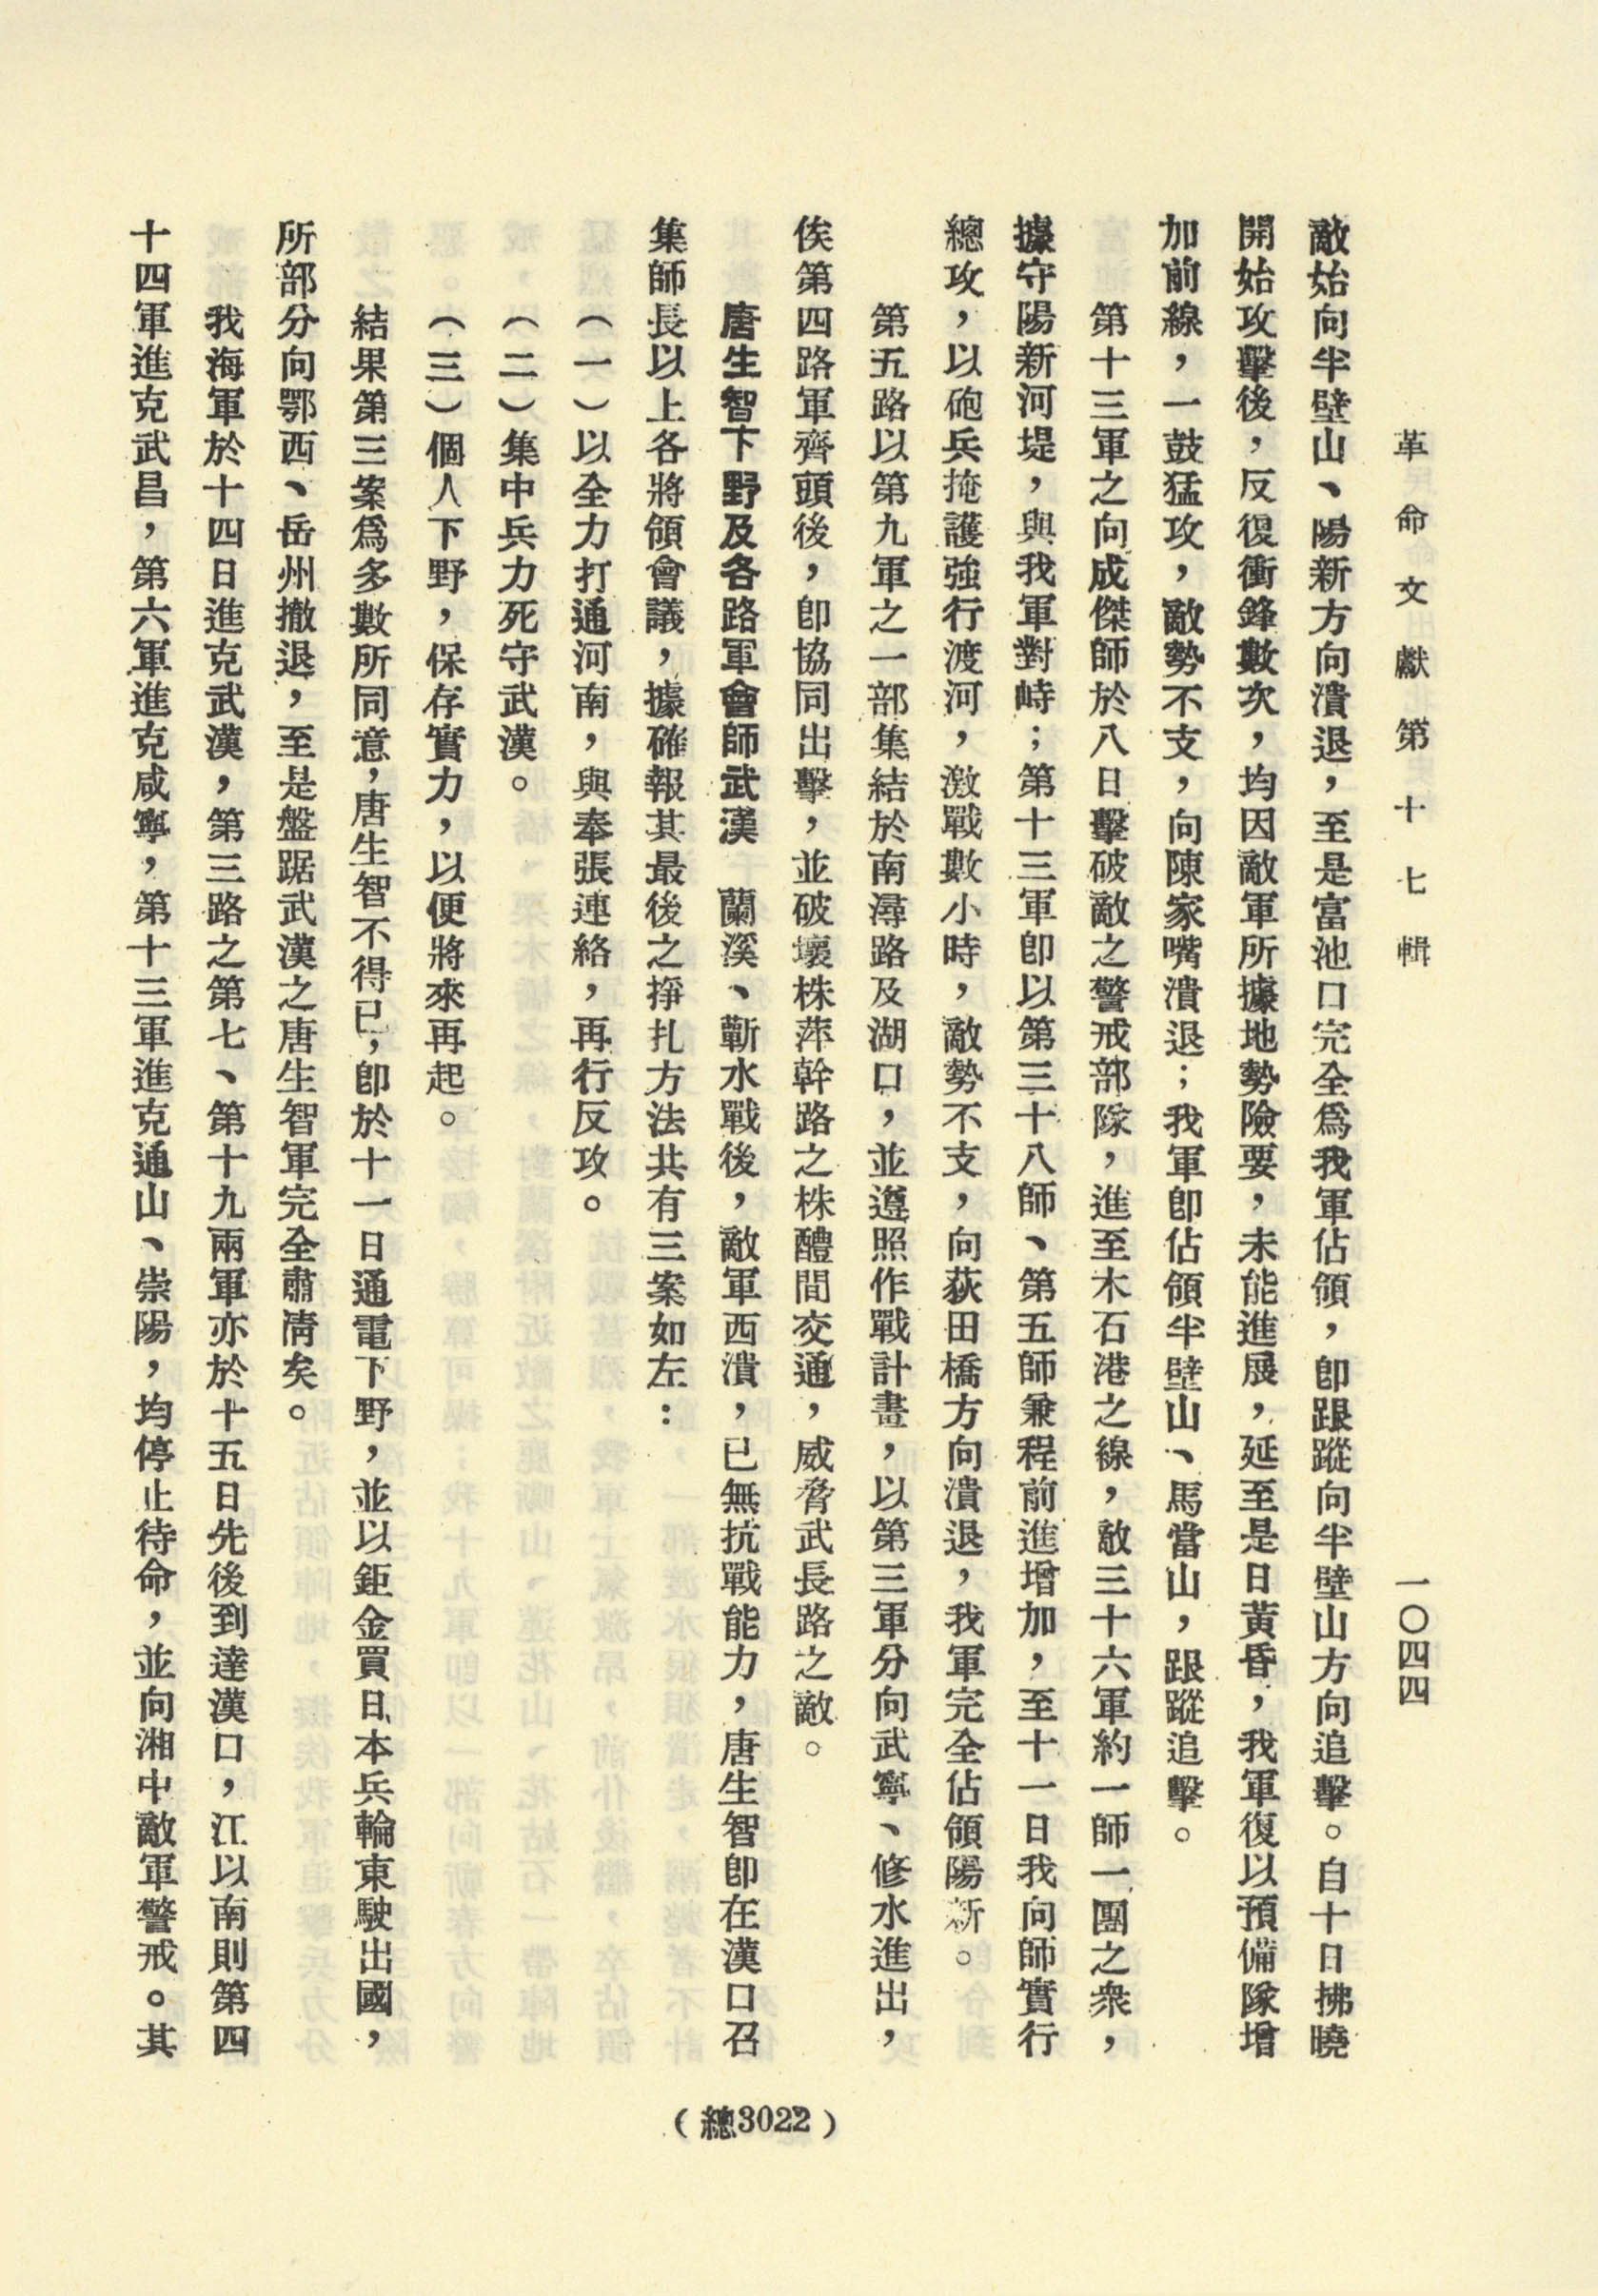 革命文獻第十七輯
一〇四四
敵始向半壁山、陽新方向潰退，至是富池口完全爲我軍佔領，卽跟蹤向半壁山方向追擊。自十日拂曉
開始攻擊後，反復衝鋒數次，均因敵軍所據地勢險要，未能進展，延至是日黃昏，我軍復以預備隊增
加前線，一鼓猛攻，敵勢不支，向陳家嘴潰退；我軍卽佔領半壁山、馬當山，跟蹤追擊。
第十三軍之向成傑師於八日擊破敵之警戒部隊，進至木石港之線，敵三十六軍約一師一團之衆，
據守陽新河堤，與我軍對峙；第十三軍卽以第三十八師、第五師兼程前進增加，至十一日我向師實行
總攻，以砲兵掩護強行渡河，激戰數小時，敵勢不支，向荻田橋方向潰退，我軍完全佔領陽新。
第五路以第九軍之一部集結於南潯路及湖口，並遵照作戰計畫，以第三軍分向武寧、修水進出，
俟第四路軍齊頭後，卽協同出擊，並破壞株萍幹路之株醴間交通，威脅武長路之敵。
唐生智下野及各路軍會師武漢　蘭溪、蘄水戰後，敵軍西潰，已無抗戰能力，唐生智卽在漢口召
集師長以上各將領會議，據確報其最後之掙扎方法共有三案如左：
（一）以全力打通河南，與奉張連絡，再行反攻。
（二）集中兵力死守武漢。
（三）個人下野，保存實力，以便將來再起。
結果第三案爲多數所同意，唐生智不得已，卽於十一日通電下野，並以鉅金買日本兵輪東駛出國，
所部分向鄂西、岳州撤退，至是盤踞武漢之唐生智軍完全肅清矣。
我海軍於十四日進克武漢，第三路之第七、第十九兩軍亦於十五日先後到達漢口，江以南則第四
十四軍進克武昌，第六軍進克咸寧，第十三軍進克通山、崇陽，均停止待命，並向湘中敵軍警戒。其
（總3022）